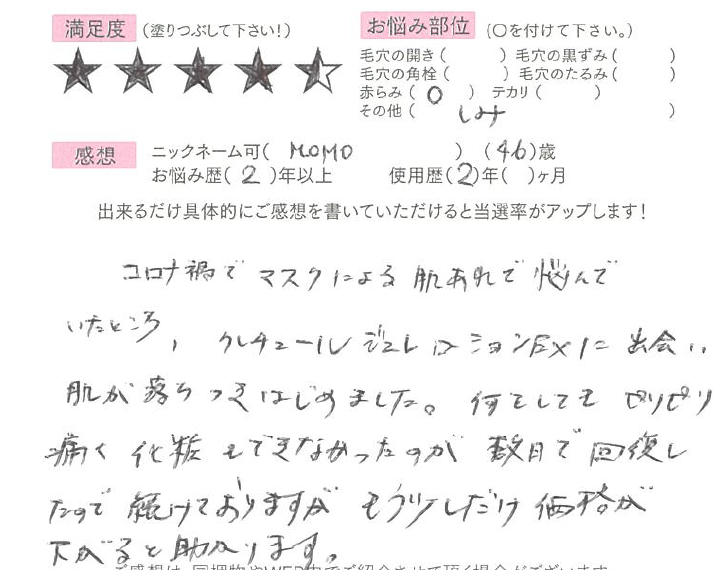 満足度 (塗りつぶして下さい!)
お悩み部位 (〇を付けて下さい。)
毛穴の開き ( ) 毛穴の黒ずみ ( )
毛穴の角栓 ( ) 毛穴のたるみ ( )
赤らみ ( 〇 ) テカリ ( )
その他 ( しみ )
感想 ニックネーム可( MOMO ) (46)歳
お悩み歴( 2 )年以上 使用歴(2)年( )ヶ月
出来るだけ具体的にご感想を書いていただけると当選率がアップします!
コロナ禍で マスクによる 肌あれで 悩んで
いたところ、クレチュールジェルローションEXに 出会い
肌が 落ちつきはじめました。何をしても ピリピリ
痛く 化粧もできなかったのが 数日で 回復し
たので 続けておりますが もう少しだけ 価格が
下がると 助かります。